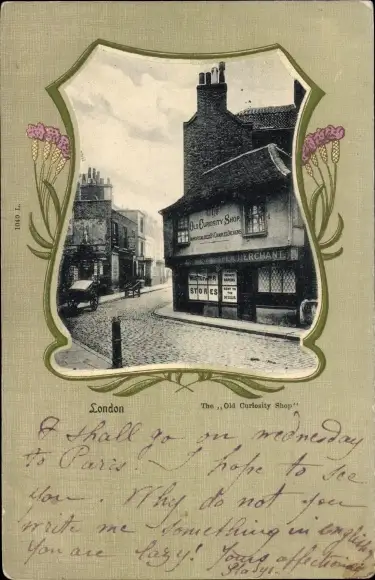 1049 L.
THE
OLD CURIOSITY SHOP
IMMORTALIZED BY CHARLES DICKENS
MERCHANT
WASTE PAPER
STORES
London
The „Old Curiosity Shop"
I shall go on wednesday
to Paris. I hope to see
you. Why do not you
write me something in english?
You are lazy! Yours affectionate
Gladys.